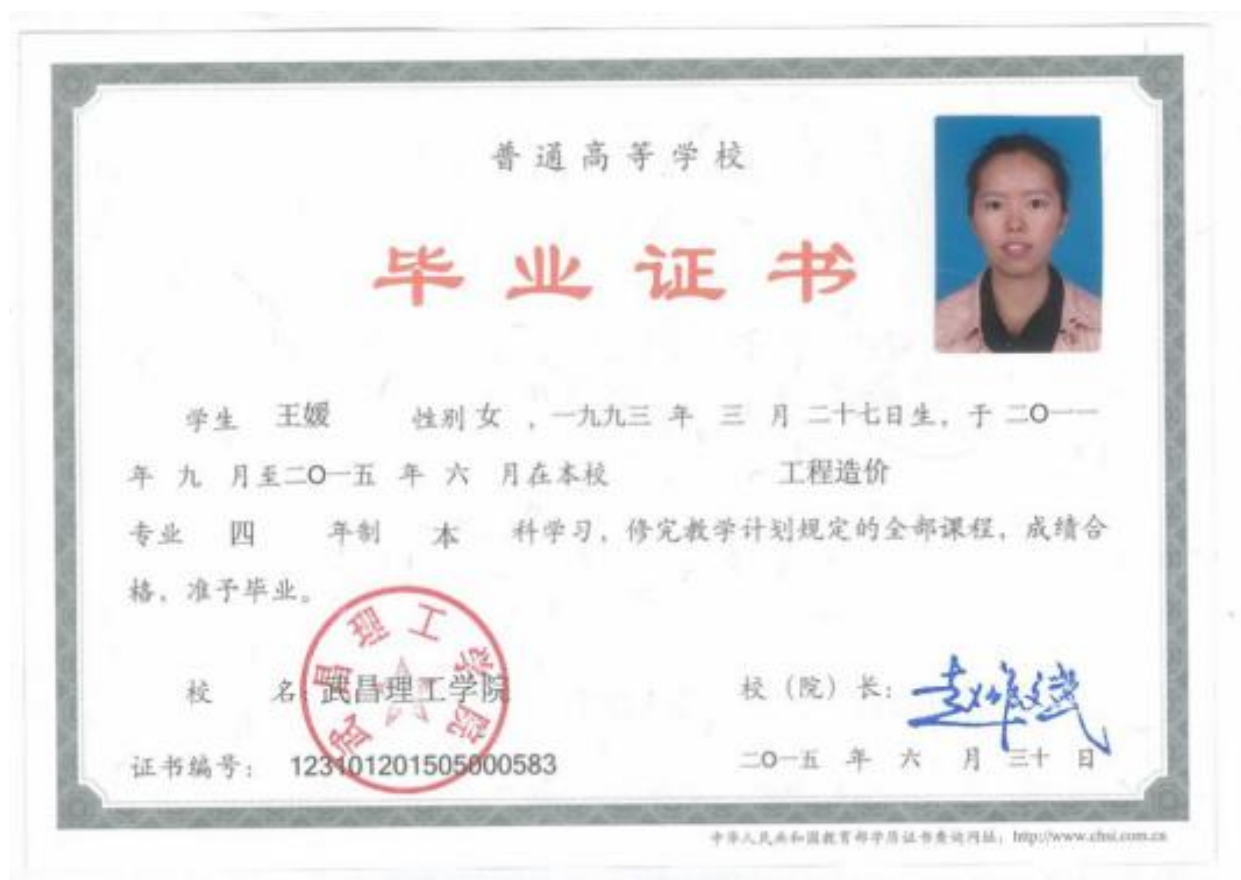 普通高等学校
毕业证书
学生 王媛 性别 女 , 一九九三 年 三 月 二十七日生, 于 二O一一
年 九 月至二O一五 年 六 月在本校 工程造价
专业 四 年制 本 科学习, 修完教学计划规定的全部课程, 成绩合
格, 准予毕业。
武昌理工学院
校 名: 武昌理工学院 校 (院) 长:
证书编号: 123101201505000583 二O一五 年 六 月 三十 日
中华人民共和国教育部学历证书查询网址: http://www.chsi.com.cn